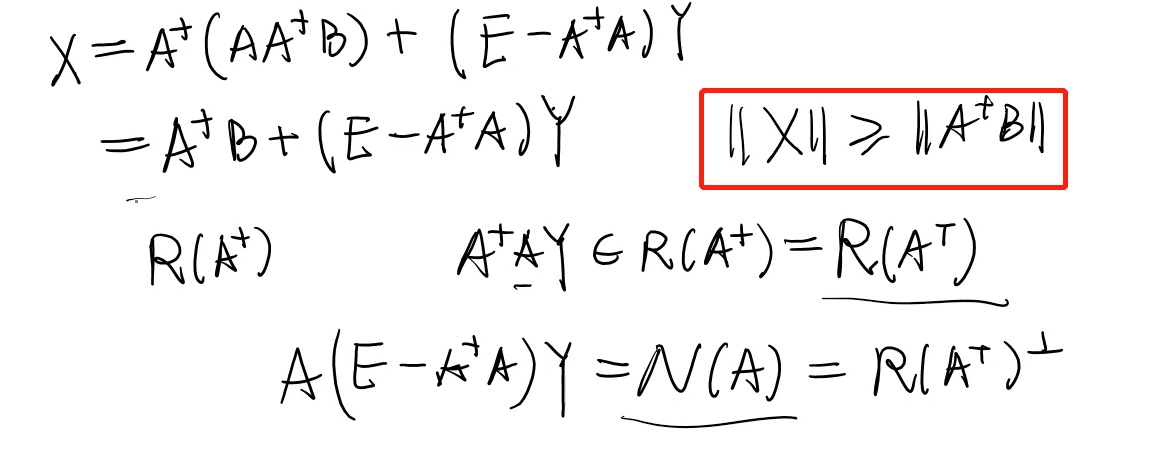 X = A⁺(AA⁺B) + (E-A⁺A)Y
= A⁺B + (E-A⁺A)Y
||X|| ⩾ ||A⁺B||
R(A⁺)
A⁺AY ∈ R(A⁺) = R(Aᵀ)
A(E-A⁺A)Y = N(A) = R(A⁺)⊥